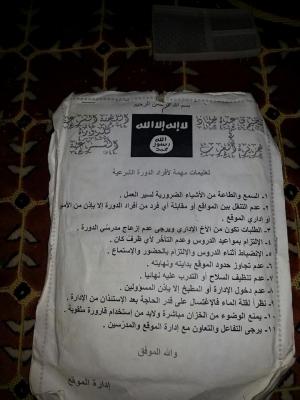 بسم الله الرحمن الرحيم
لا إله إلا الله
الله
رسول
محمد
تعليمات مهمة لأفراد الدورة الشرعية
١- السمع والطاعة من الأشياء الضرورية لسير العمل .
٢- عدم التنقل بين المواقع أو مقابلة أي فرد من أفراد الدورة إلا بإذن من الأمير
أو إداري الموقع .
٣- الطلبات تكون من الأخ الإداري ويرجى عدم إزعاج مدرسي الدورة .
٤- الإلتزام بمواعيد الدروس وعدم التأخر لأي ظرف كان .
٥- الإنضباط أثناء الدروس والإلتزام بالحضور والاستماع .
٦- عدم تجاوز حدود الموقع بدايته ونهايته .
٧- عدم تنظيف السلاح أو التدرب عليه نهائيا .
٨- عدم دخول الإدارة أو المطبخ إلا بإذن المسؤولين .
٩- نظرا لقلة الماء فالإغتسال على قدر الحاجة بعد الإستئذان من الإدارة .
١٠- يمنع الوضوء من الخزان مباشرة ولابد من استخدام قارورة مثقوبة .
١١- يرجى التفاعل والتعاون مع إدارة الموقع والمدرسين .
والله الموفق
إدارة الموقع